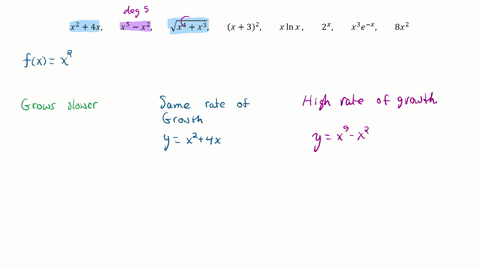 deg 5
x² + 4x, x⁵ − x², √(x⁴ + x³), (x + 3)², x ln x, 2ˣ, x³e⁻ˣ, 8x²
f(x) = x²
Grows slower
Same rate of Growth
High rate of growth
y = x² + 4x
y = x⁵ − x²